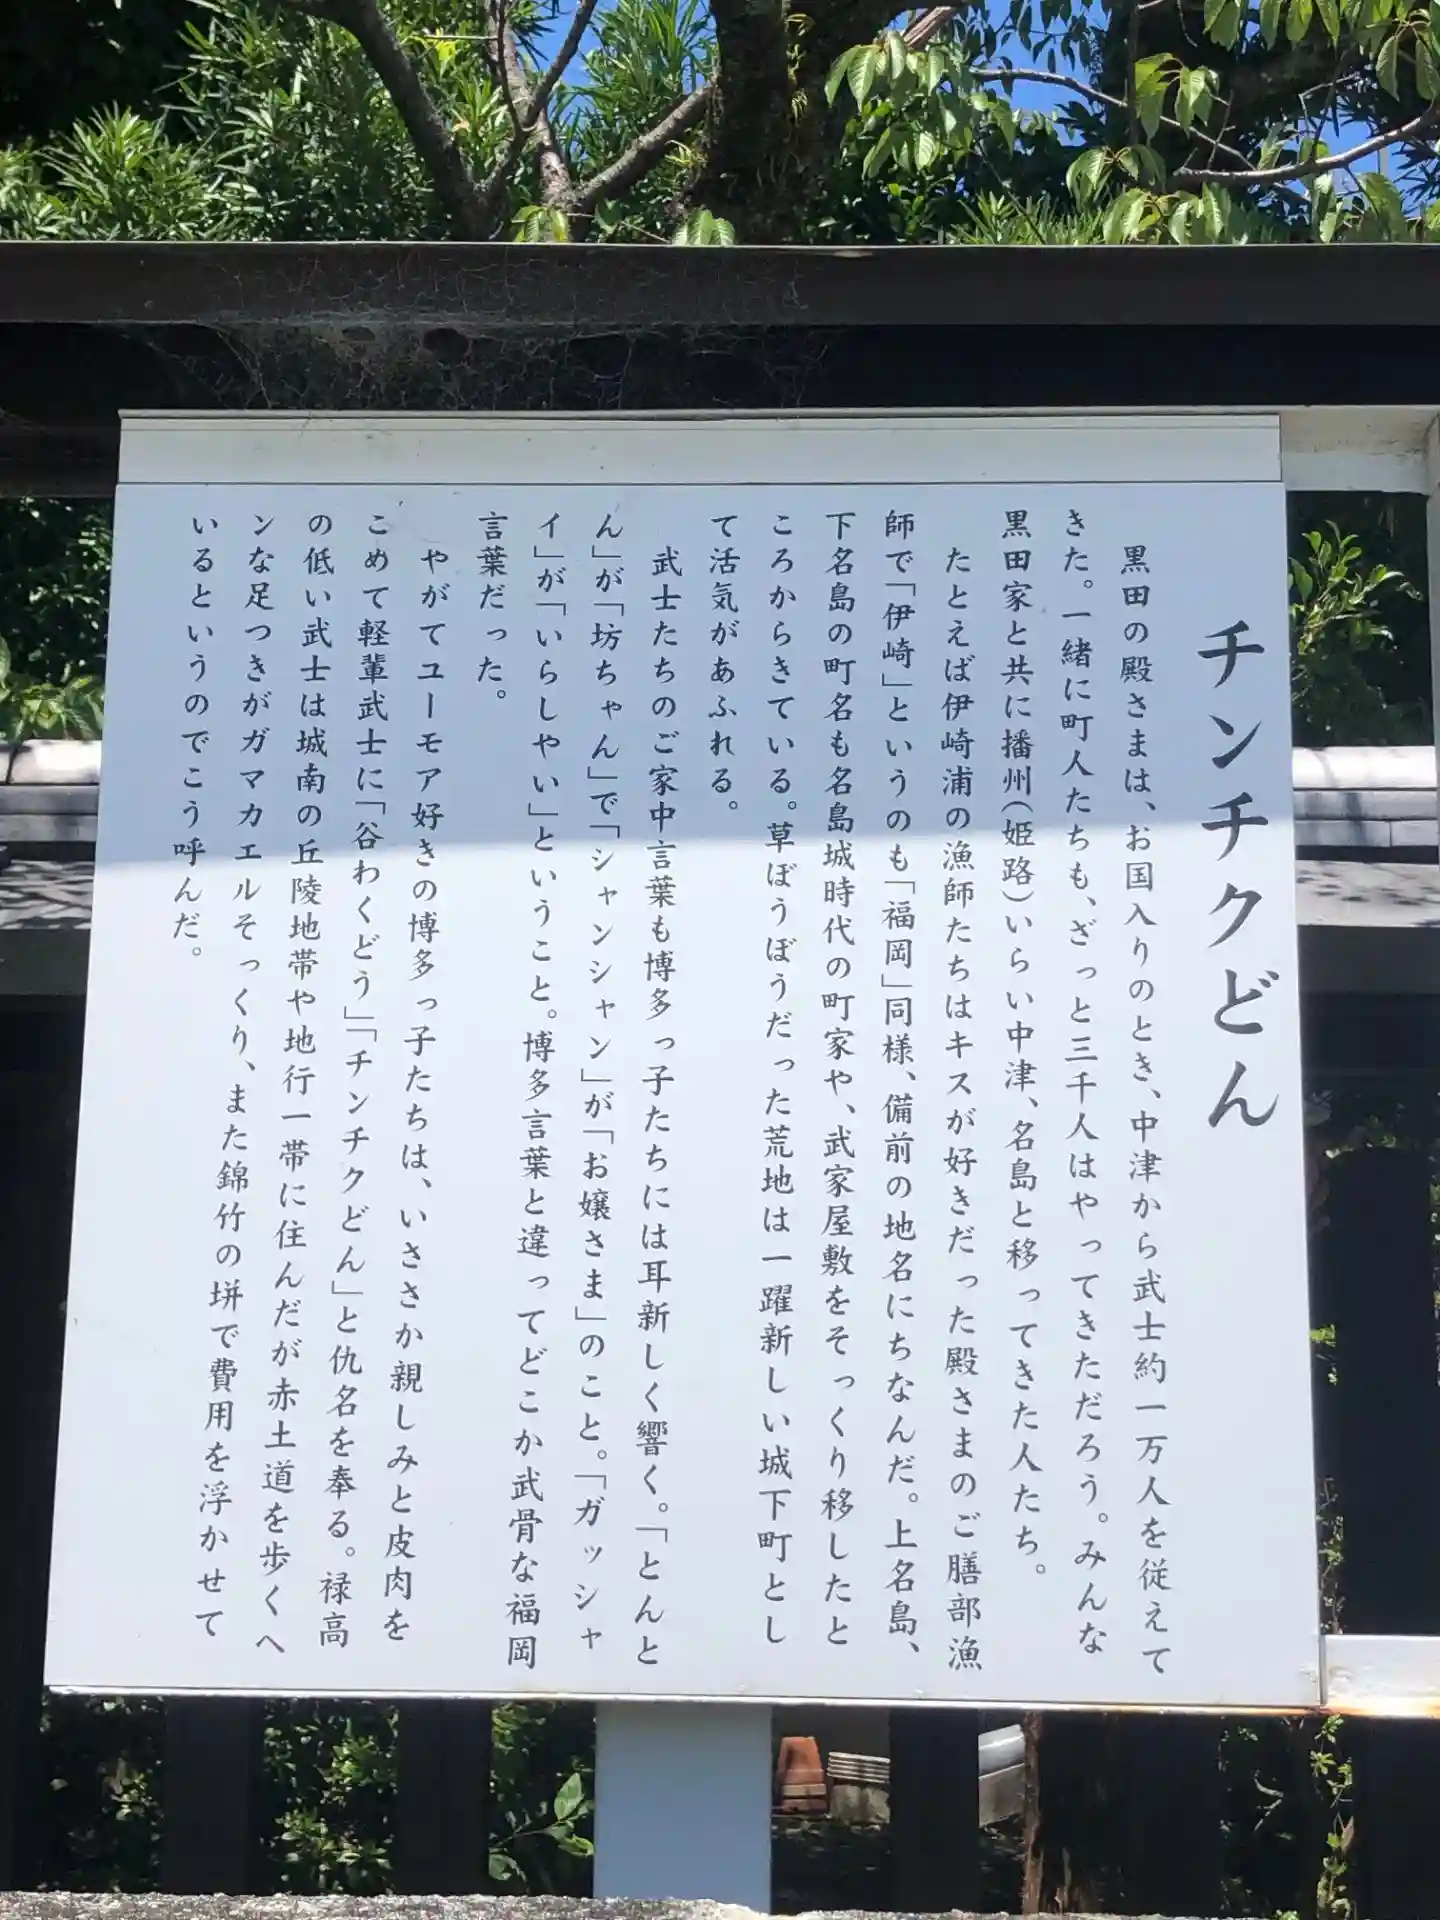 チンチクどん
黒田の殿さまは、お国入りのとき、中津から武士約一万人を従えて
きた。一緒に町人たちも、ざっと三千人はやってきただろう。みんな
黒田家と共に播州（姫路）いらい中津、名島と移ってきた人たち。
たとえば伊崎浦の漁師たちはキスが好きだった殿さまのご膳部漁
師で「伊崎」というのも「福岡」同様、備前の地名にちなんだ。上名島、
下名島の町名も名島城時代の町家や、武家屋敷をそっくり移したと
ころからきている。草ぼうぼうだった荒地は一躍新しい城下町とし
て活気があふれる。
武士たちのご家中言葉も博多っ子たちには耳新しく響く。「とんと
ん」が「坊ちゃん」で「シャンシャン」が「お嬢さま」のこと。「ガッシャ
イ」が「いらしやい」ということ。博多言葉と違ってどこか武骨な福岡
言葉だった。
やがてユーモア好きの博多っ子たちは、いささか親しみと皮肉を
こめて軽輩武士に「谷わくどう」「チンチクどん」と仇名を奉る。禄高
の低い武士は城南の丘陵地帯や地行一帯に住んだが赤土道を歩くヘ
ンな足つきがガマカエルそっくり、また錦竹の塀で費用を浮かせて
いるというのでこう呼んだ。